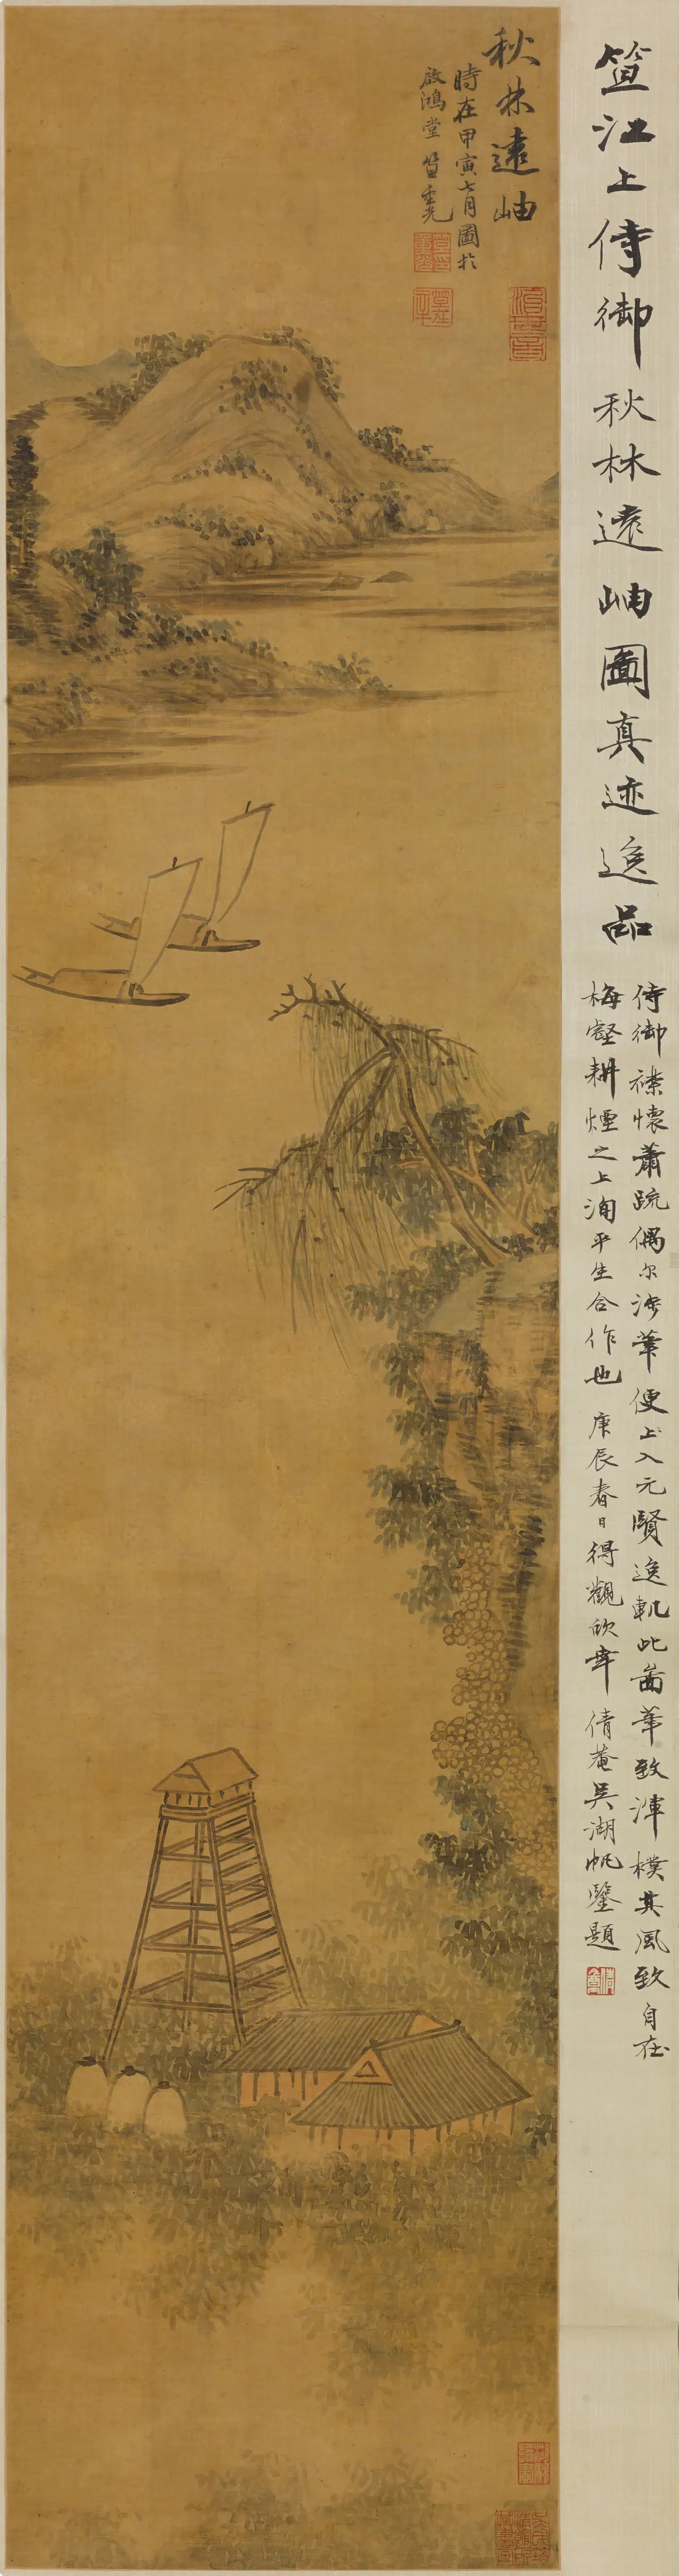 笪江上侍御秋林遠岫圖真迹逸品
侍御襟懷蕭疏偶尔涉筆便上入元賢逸軌此啚筆致渾樸其風致自在
梅壑耕煙之上洵平生合作也 庚辰春日得觀欣幸 倩菴吳湖帆鑒題
秋林遠岫
時在甲寅七月圖於
啟鴻堂 笪重光